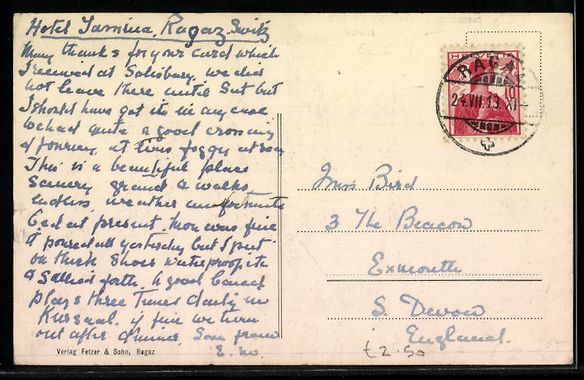 Hotel Tamina, Ragaz Switz
Many thanks for your card which
I received at Salisbury, we did
not leave there until Sat but
I should have got it in any case
We had quite a good crossing
& journey, at times foggy at sea,
This is a beautiful place
Scenery grand & walks
endless weather unfortunate
bad at present. Mon was fine
it poured all yesterday but I put
on thick shoes & waterproof etc
& sallied forth. A good band
plays three times daily in
Kursaal. if fine we turn
out after dinner.
E. M.
Verlag Fetzer & Sohn, Ragaz
HELVETIA
RAGAZ
24.VII.13.XI
10
Miss Bird
3 The Beacon
Exmouth
S. Devon
England.
£2.50